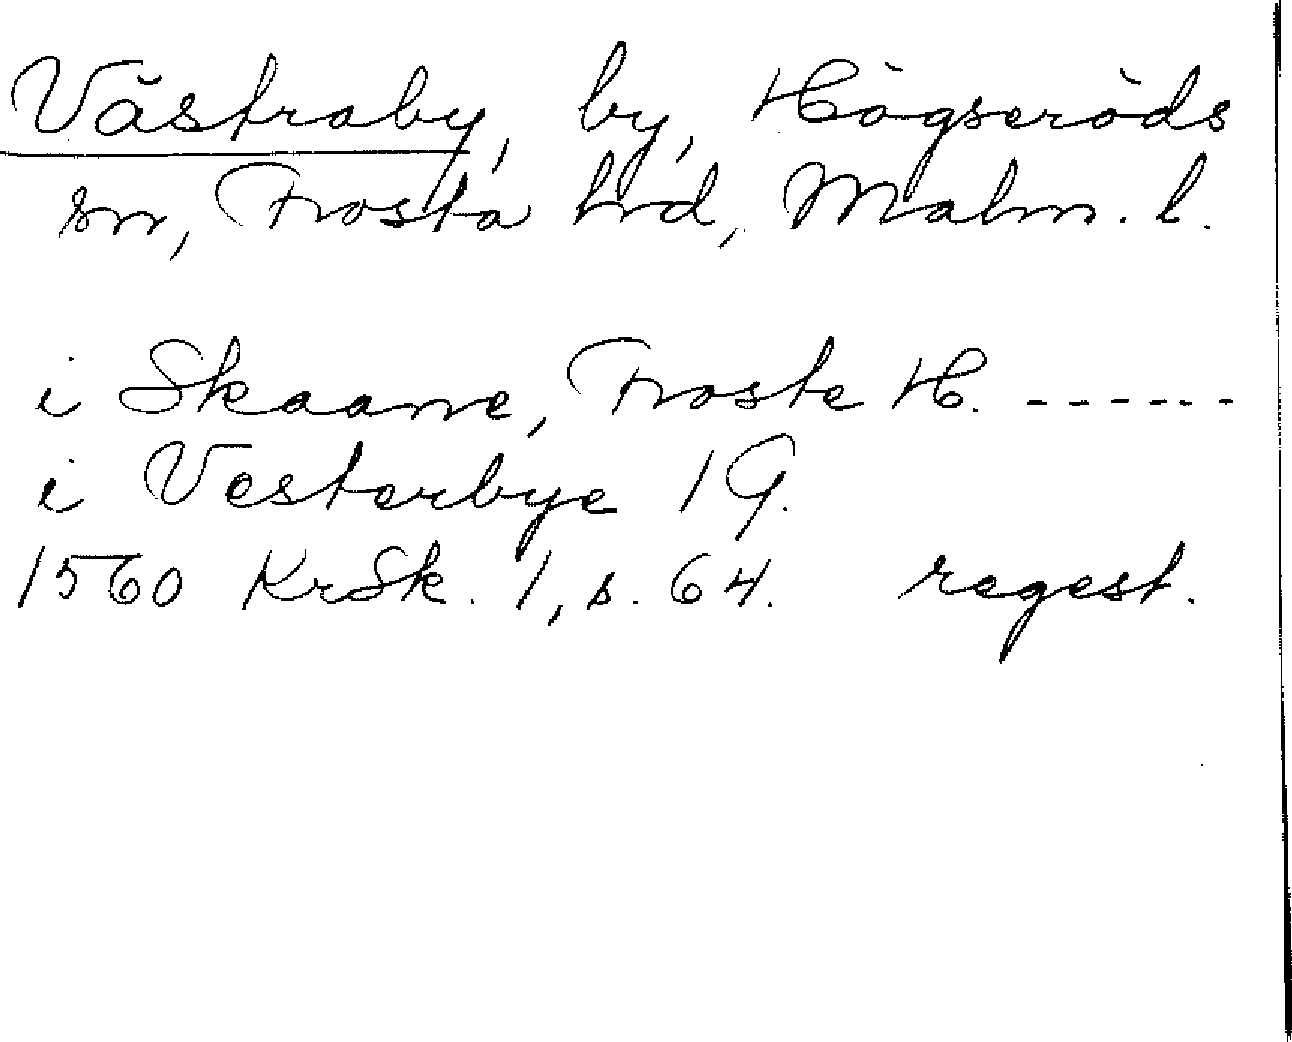 Västraby, by, Högseröds
sn, Frosta hrd, Malm. l.
i Skaane, Froste H. ------
i Vesterbye 1 G.
1560 KrSk. 1, s. 64. regest.